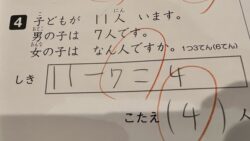 4 子どもが 11人 います。
男の子は 7人です。
女の子は なん人ですか。1つ3てん(6てん)
しき 11-7=4
こたえ (4)人